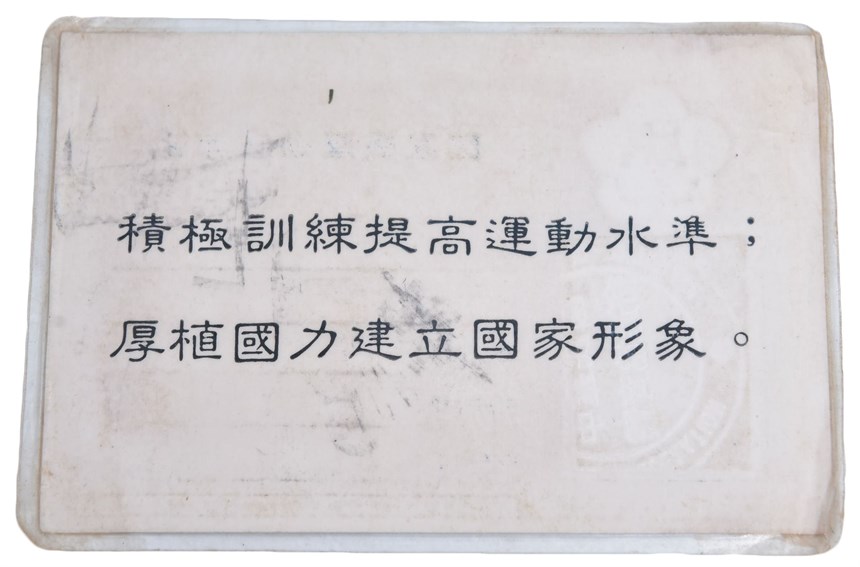 積極訓練提高運動水準；
厚植國力建立國家形象。